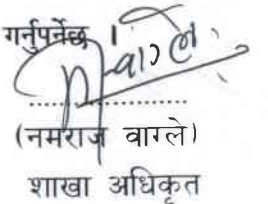 गर्नुपर्नेछ ।
वाग्ले
....................
(नमराज वाग्ले)
शाखा अधिकृत